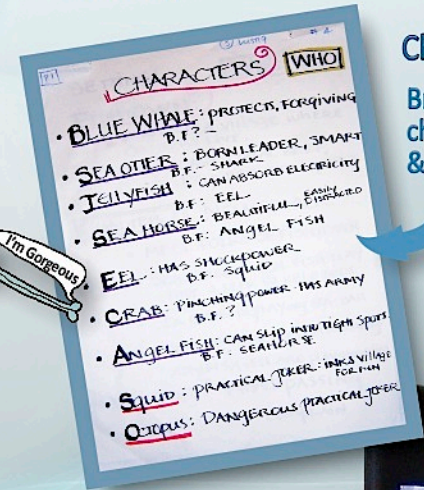 P1
# 4
CHARACTERS WHO
• BLUE WHALE: PROTECTS, FORGIVING
B.F? -
• SEA OTTER: BORN LEADER, SMART
B.F. - SHARK
• JELLYFISH: CAN ABSORB ELECTRICITY
B.F: EEL
• SEA HORSE: BEAUTIFUL, EASILY DISTRACTED
B.F: ANGEL FISH
• EEL: HAS SHOCKPOWER
B.F. Squid
• CRAB: PINCHING POWER. HAS ARMY
B.F. ?
• ANGEL FISH: CAN SLIP INTO TIGHT SPOTS.
B.F. SEAHORSE.
• Squid: PRACTICAL JOKER: INKS VILLAGE
FOR FUN
• OCTOPUS: DANGEROUS PRACTICAL JOKER
I'm Gorgeous
&